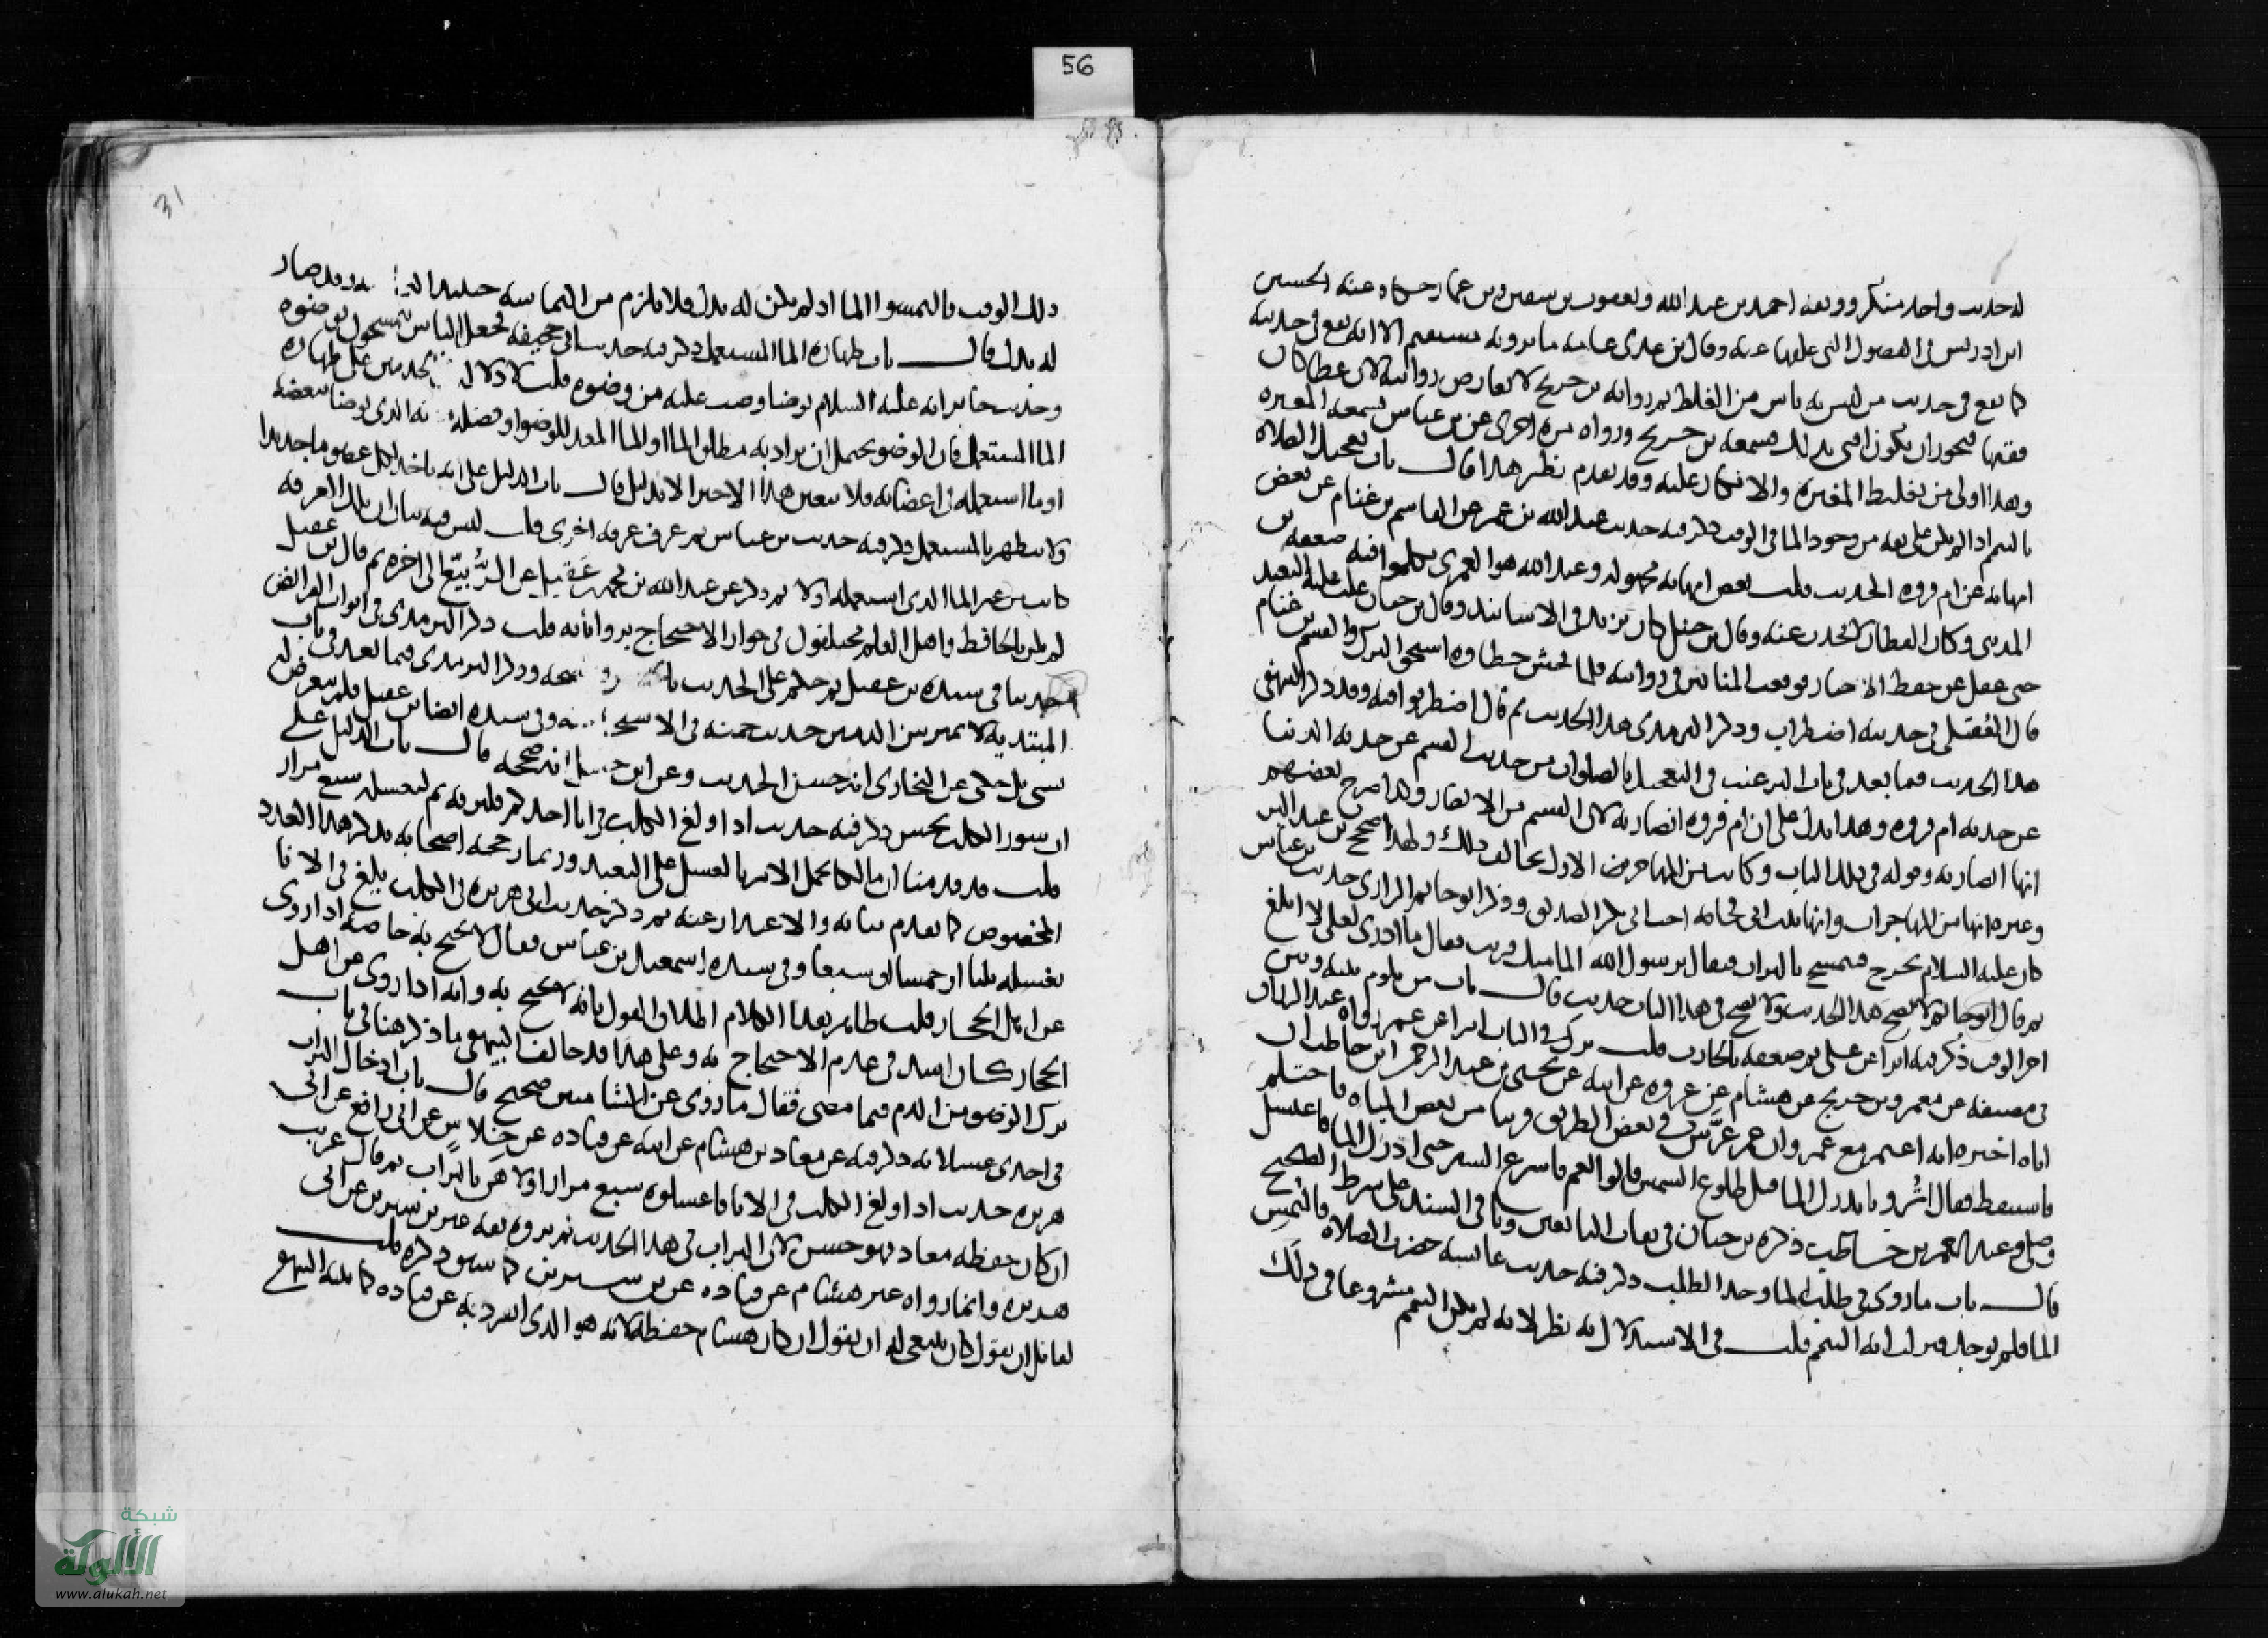 56
31
له حديث واحد منكر ووثقه احمد بن عبد الله ويعقوب بن سفين وبن عمار حكاه عنه الحسين
ابن ادريس في الفصول التي علقها عنه وقال بن عدى عامة ما يرويه مستقيم الا انه يقع في حديثه
كما يقع في حديث من ليس به باس من الغلط ثم روايه بن جريج لا تعارض روايته لان عطا كان
فقيها فيجوز ان يكون افتى بذلك فسمعه بن جريج ورواه مرة اخرى عن بن عباس فسمعه المغيره
وهذا اولى من تغليط المغيره والانكار عليه وقد تقدم نظير هذا قال باب تعجيل الصلاه
بالتيمم اذا لم يكن على ثقه من وجود الما في الوقت ذكر فيه حديث عبد الله بن عمر عن القاسم بن غنام عن بعض
امهاته عن ام فروه الحديث قلت بعض امهاته مجهوله وعبد الله هو العمرى تكلموا فيه ضعفه بن
المدينى وكان القطان لا يحدث عنه وقال بن حنبل كان يزيد في الاسانيد وقال بن حبان غلب عليه التعبد
حتى غفل عن حفظ الاخبار فوقعت المناكير في روايته فلما فحش خطاوه استحق الترك والقسم بن غنام
قال العقيلى في حديثه اضطراب وذكر الترمذى هذا الحديث ثم قال اضطربوا فيه وقد ذكر البيهقى
هذا الحديث فيما بعد في باب الترغيب في التعجيل بالصلوات من حديث القسم عن جدته الدنيا
عن جدته ام فروه وهذا يدل على ان ام فروه انصاريه لان القسم من الانصار ولذا صرح بعضهم
انها انصاريه وقوله في ذلك الباب وكانت من المهاجرات الاول يخالف ذلك ولهذا صحح بن عبد البر
وغيره انها من المهاجرات وانها بنت ابى قحافه اخت ابى بكر الصديق وذكر ابو حاتم الرازى حديث بن عباس
كان عليه السلام يخرج فيتمسح بالتراب فيقال يرسول الله الما منك قريب فقال ما ادرى لعلى لا ابلغ
ثم قال ابو حاتم لا يصح هذا الحديث ولا يصح في هذا الباب حديث قال باب من تلوم بينه وبين
اخر الوقت ذكر فيه اثرا عن على ثم ضعفه بالحارث قلت ترك في الباب اثرا عن عمر رواه عبد الرزاق
في مصنفه عن معمر وبن جريج عن هشام عن عروه عن ابيه عن يحيى بن عبد الرحمن ابن حاطب ان
اباه اخبره انه اعتمر مع عمر وان عمر عرّس في بعض الطريق قريبا من بعض المياه فاحتلم
فاستيقظ فقال اترونا ندرك الما قبل طلوع الشمس قالوا نعم فاسرع السير حتى ادرك الما فاغتسل
وصلى وعبد الرحمن بن حاطب ذكره بن حبان في ثقات التابعين وباقى السند على شرط الصحيح
قال باب ما روى في طلب الما وحد الطلب ذكر فيه حديث عايشه حضرت الصلاه فالتمس
الما فلم يوجد ونزلت ايه التيمم قلت في الاستدلال به نظر لانه لم يكن التيمم مشروعا في ذلك
ذلك الوقت فالتمسوا الما اذ لم يكن له بدل فلا يلزم من التماسه حينئذ وقد صار
له بدل قال باب طهارة الما المستعمل ذكر فيه حديث ابى جحيفه فجعل الناس يتمسحون بوضوه
وحديث جابر انه عليه السلام توضا وصب عليه من وضوه قلت لا دلاله الحديثين على طهارة
الما المستعمل فان الوضو يحتمل ان يراد به مطلق الما او الما المعد للوضو او فضله الذى توضا ببعضه
او ما استعمله في اعضائه فلا يتعين هذا الاخير الا بدليل قال باب الدليل على انه ياخذ لكل عضو ما جديدا
ولا يتطهر بالمستعمل ذكر فيه حديث بن عباس ثم غرف غرفه اخرى قلت ليس فيه بيان ان تلك الغرفه
كانت من غير الما الذى استعمله اولا ثم ذكر عن عبد الله بن محمد بن عَقيل عن الرُّبيّع الى اخره ثم قال بن عقيل
لم يكن بالحافظ واهل العلم مختلفون في جواز الاحتجاج برواياته قلت ذكر الترمذى في ابواب الفرائض
حديثا في سنده بن عقيل ثم حكم على الحديث وصححه وذكر البيهقى فيما بعد في باب
المبتديه لا تميز بين الدمين حديث حمنه في الاستحاضه وفي سنده ايضا بن عقيل فلم يتعرض له
بشى بل حكى عن البخارى انه حسن الحديث وعن ابن حنبل انه صححه قال باب الدليل على
ان سور الكلب نجس ذكر فيه حديث اذا ولغ الكلب في انا احدكم فليرقه ثم ليغسله سبع مرار
قلت قد قدمنا ان مالكا يحمل الامر بالغسل على التعبد وربما رجحه اصحابه بذكر هذا العدد
المخصوص كما تقدم بيانه والاعتذار عنه ثم ذكر حديث ابى هريره في الكلب يلغ في الانا
يغسله ثلثا او خمسا او سبعا وفي سنده اسمعيل بن عياش فقال لا يحتج به خاصه اذا روى
عن اهل الحجاز قلت ظاهر هذا الكلام اطلاق القول بانه لا يحتج به وانه اذا روى عن اهل
الحجاز كان اشد في عدم الاحتجاج به وعلى هذا قد خالف البيهقى ما ذكر هنا في باب
ترك الوضو من الدم فيما مضى فقال ما روى عن الشاميين صحيح قال باب ادخال التراب
في احدى غسلاته ذكر فيه عن معاذ بن هشام عن ابيه عن قتاده عن خِلاسٍ عن ابى رافع عن ابى
هريره حديث اذا ولغ الكلب في الانا فاغسلوه سبع مرار اولاهن بالتراب ثم قال غريب
ان كان حفظه معاذ فهو حسن لان التراب في هذا الحديث لم يروه ثقه غير بن سيرين عن ابى
هريره وانما رواه غير هشام عن قتاده عن بن سيرين كما سبق ذكره قلت
لقائل ان يقول كان ينبغى له ان يقول ان كان هشام حفظه لانه هو الذى انفرد به عن قتاده كما بينه البيهقى
شبكة
الألوكة
www.alukah.net